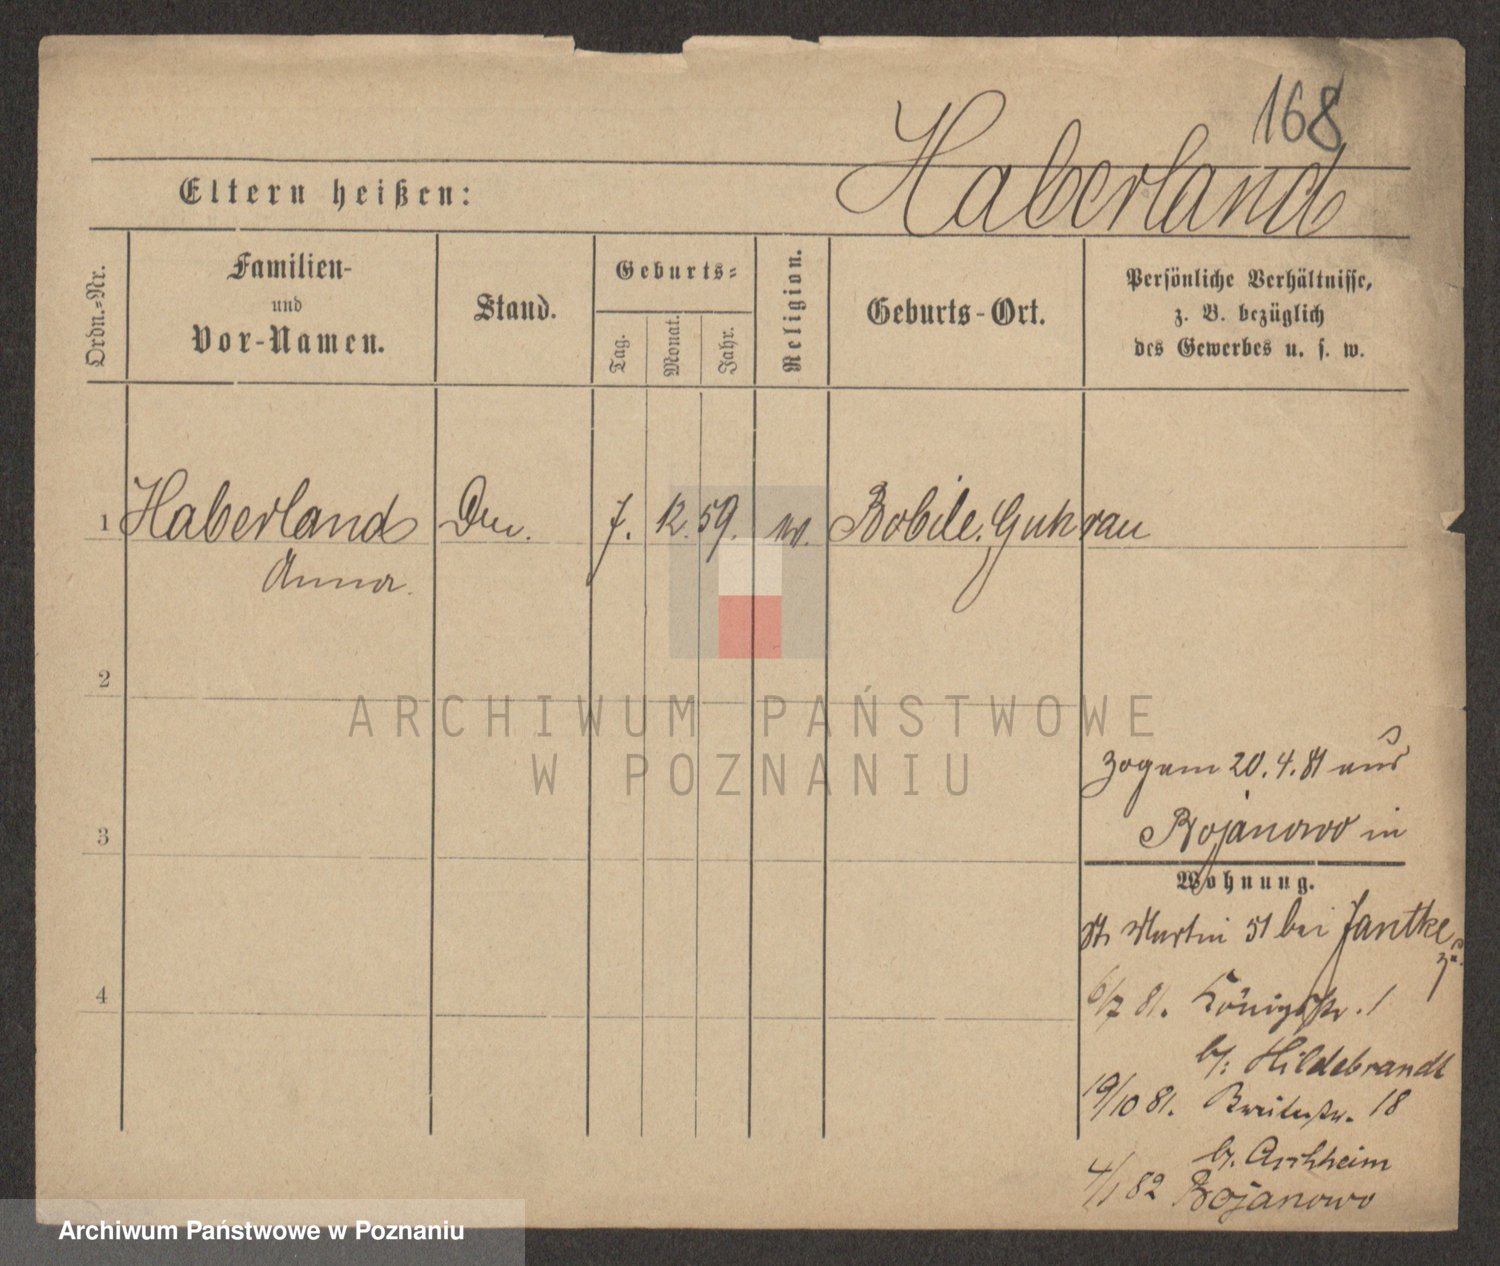 168
Haberland
Eltern heißen:
Ordn.-Nr.
Familien-
und
Vor-Namen.
Stand.
Geburts-
Tag.
Monat.
Jahr.
Religion.
Geburts-Ort.
Persönliche Verhältnisse,
z. B. bezüglich
des Gewerbes u. s. w.
1 Haberland 7. 12. 59. Bobile. Guhrau
Anna
2
ARCHIWUM PAŃSTWOWE
W POZNANIU
zog am 20.4.81 aus
3
Bojanowo in
Wohnung.
St. Martin 51 bei Jantke
4
6/7 81. Königsstr. 1
b/: Hildebrandt
19/10 81. Breitestr. 18
b/. Aschheim
4/1 82 Bojanowo
Archiwum Państwowe w Poznaniu